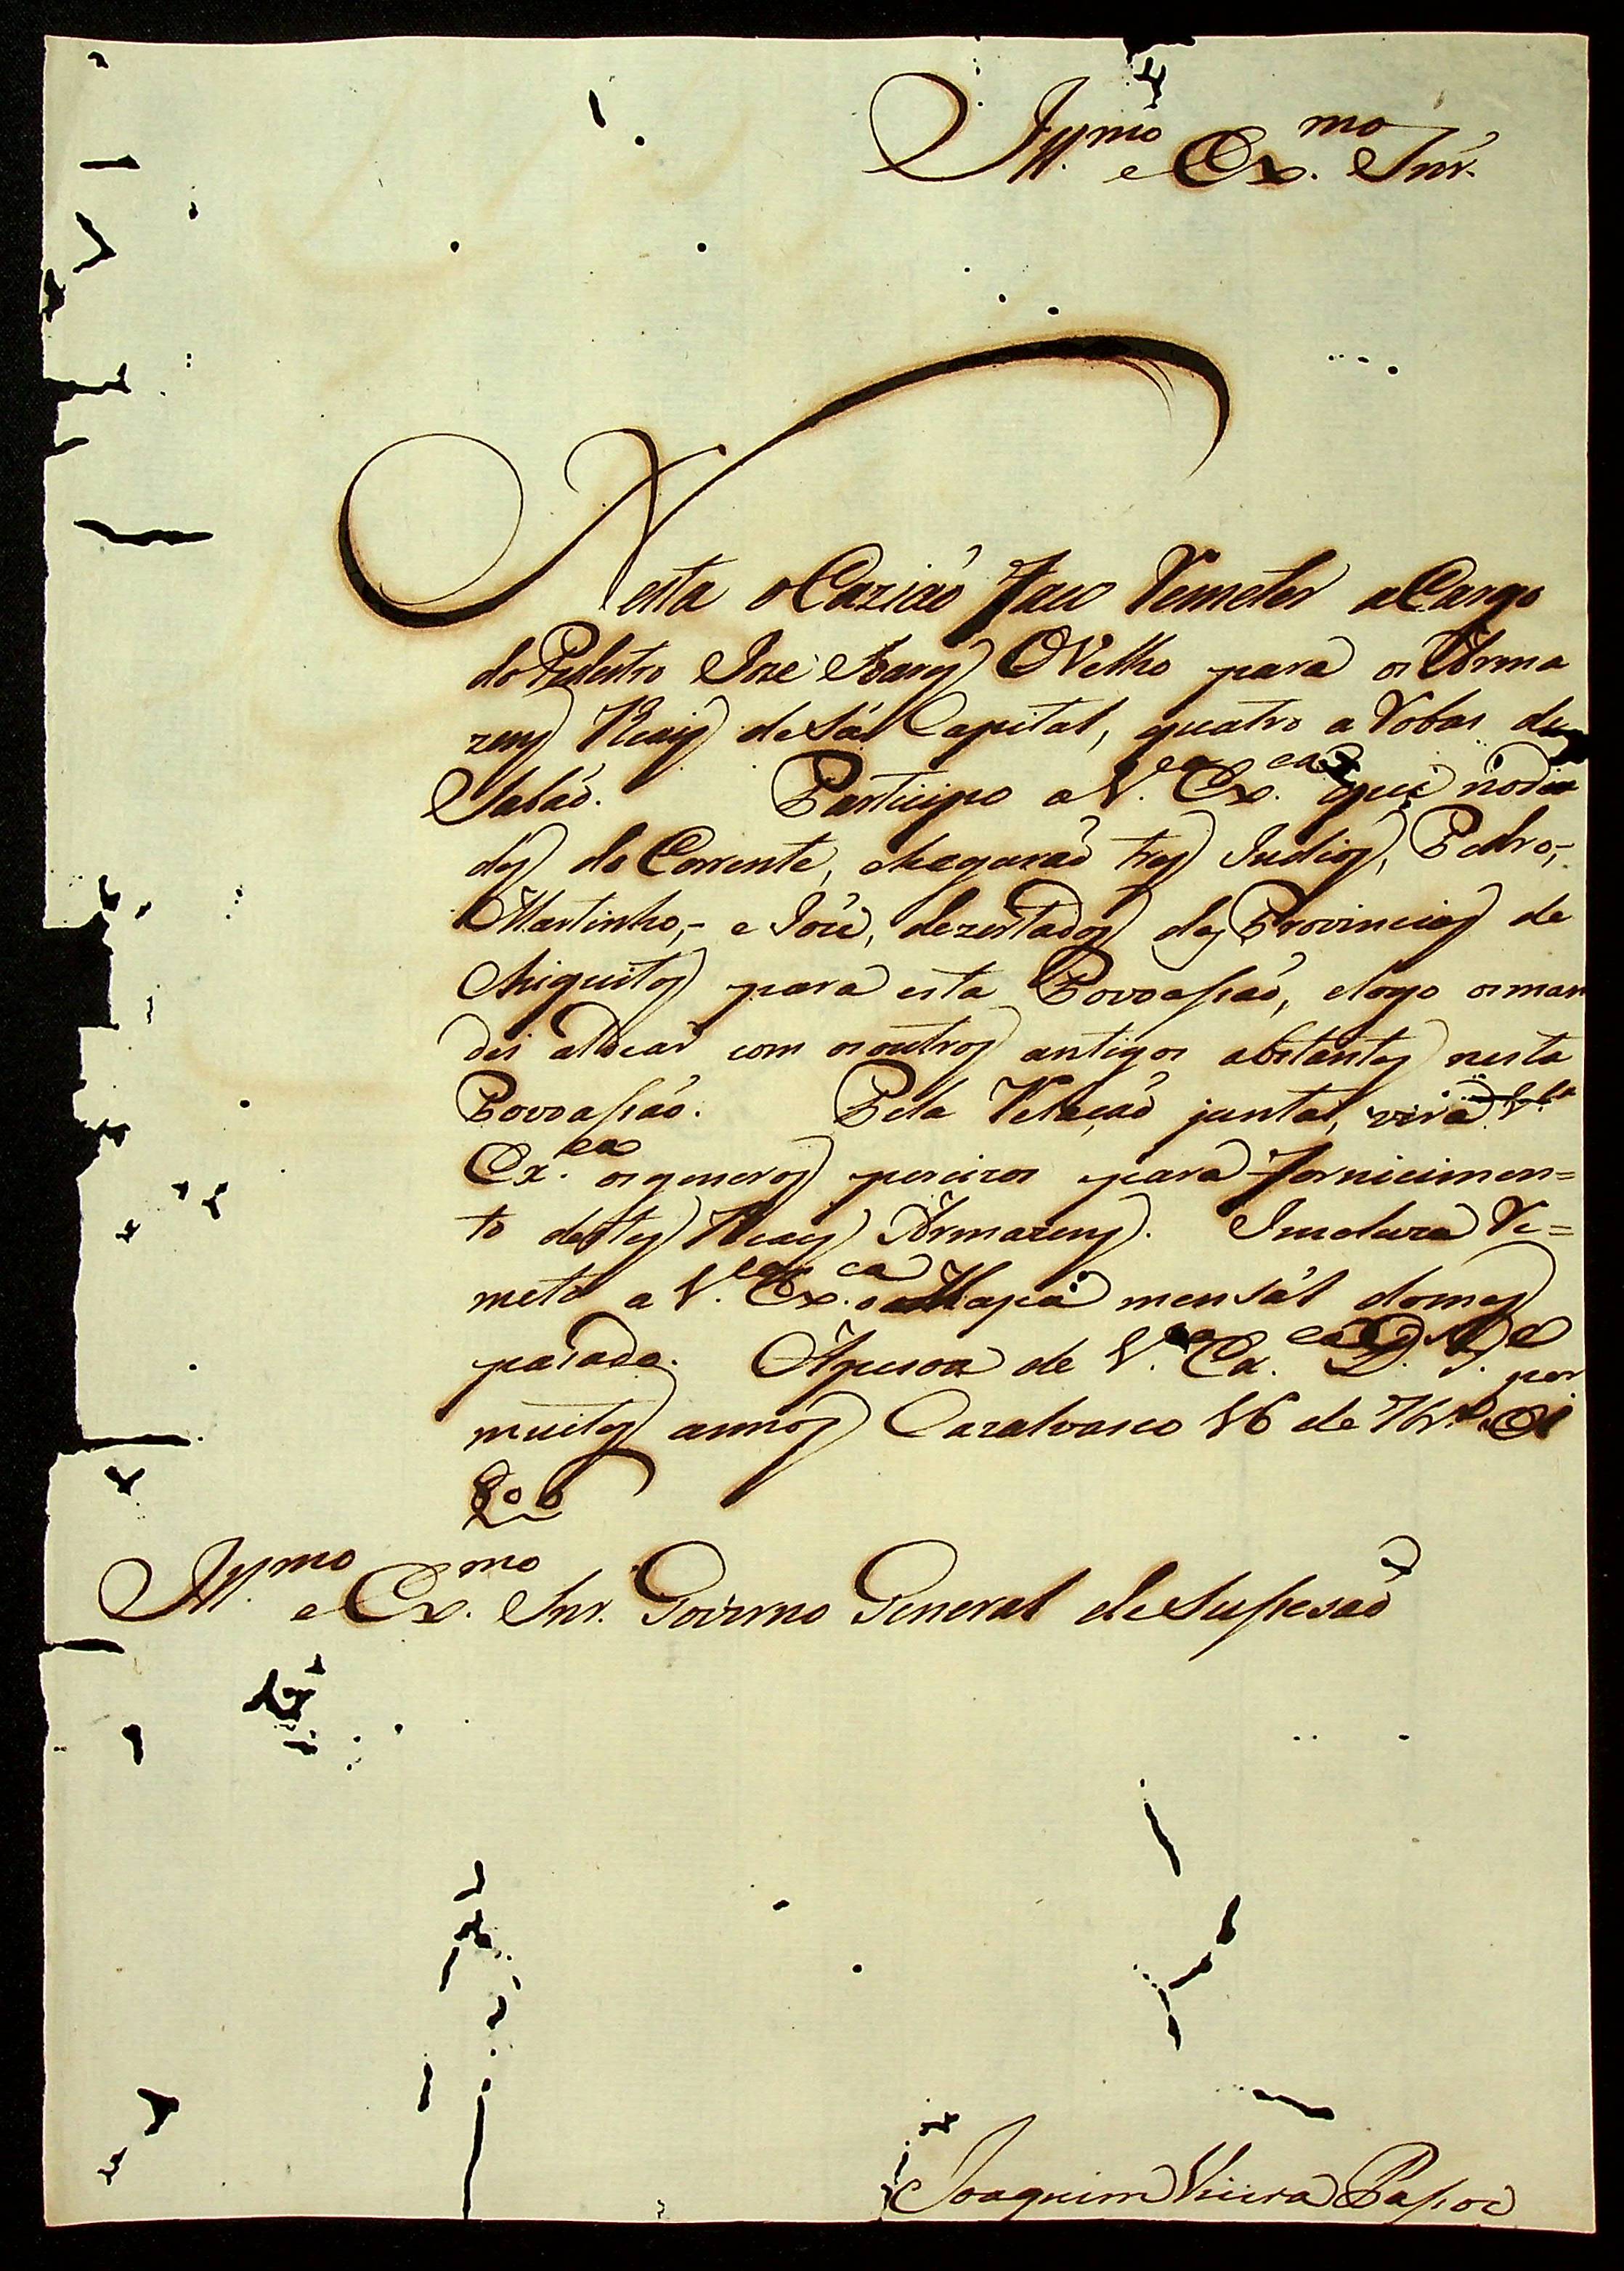 Ill.mo e Ex.mo Snr.
Nesta oCaziaõ Faco Remeter aCargo
do Pedestre Joze Soares OVelho para os Arma
zens Reais desa Capital, quatro aRobas de
Sabaõ. Participo a V.ca Ex.ca que nodia
des do Corrente, chegaraõ tres Indios, Pedro,-
Martinho,- e Joze, dezertados das Provincias de
Chiquitos para esta Povoasaõ, elogo osman
dei alocar com osoutros antigos abitantes nesta
Povoasaõ. Pela Relaçaõ junta, verá V.ca
Ex.ca osgeneros pecizos para Fornicimen=
to destes Reaes Armazens. Incluza Re=
meto a V.ca Ex.ca oMapa mensál domes
pasado. Apesoa de V.ca Ex.ca D. G.e por
muitos annos Cazalvasco 16 de 7br.o de
806
Ill.mo e Ex.mo Snr. Governo General deSusesaõ
Joaquim Vieira Pasos